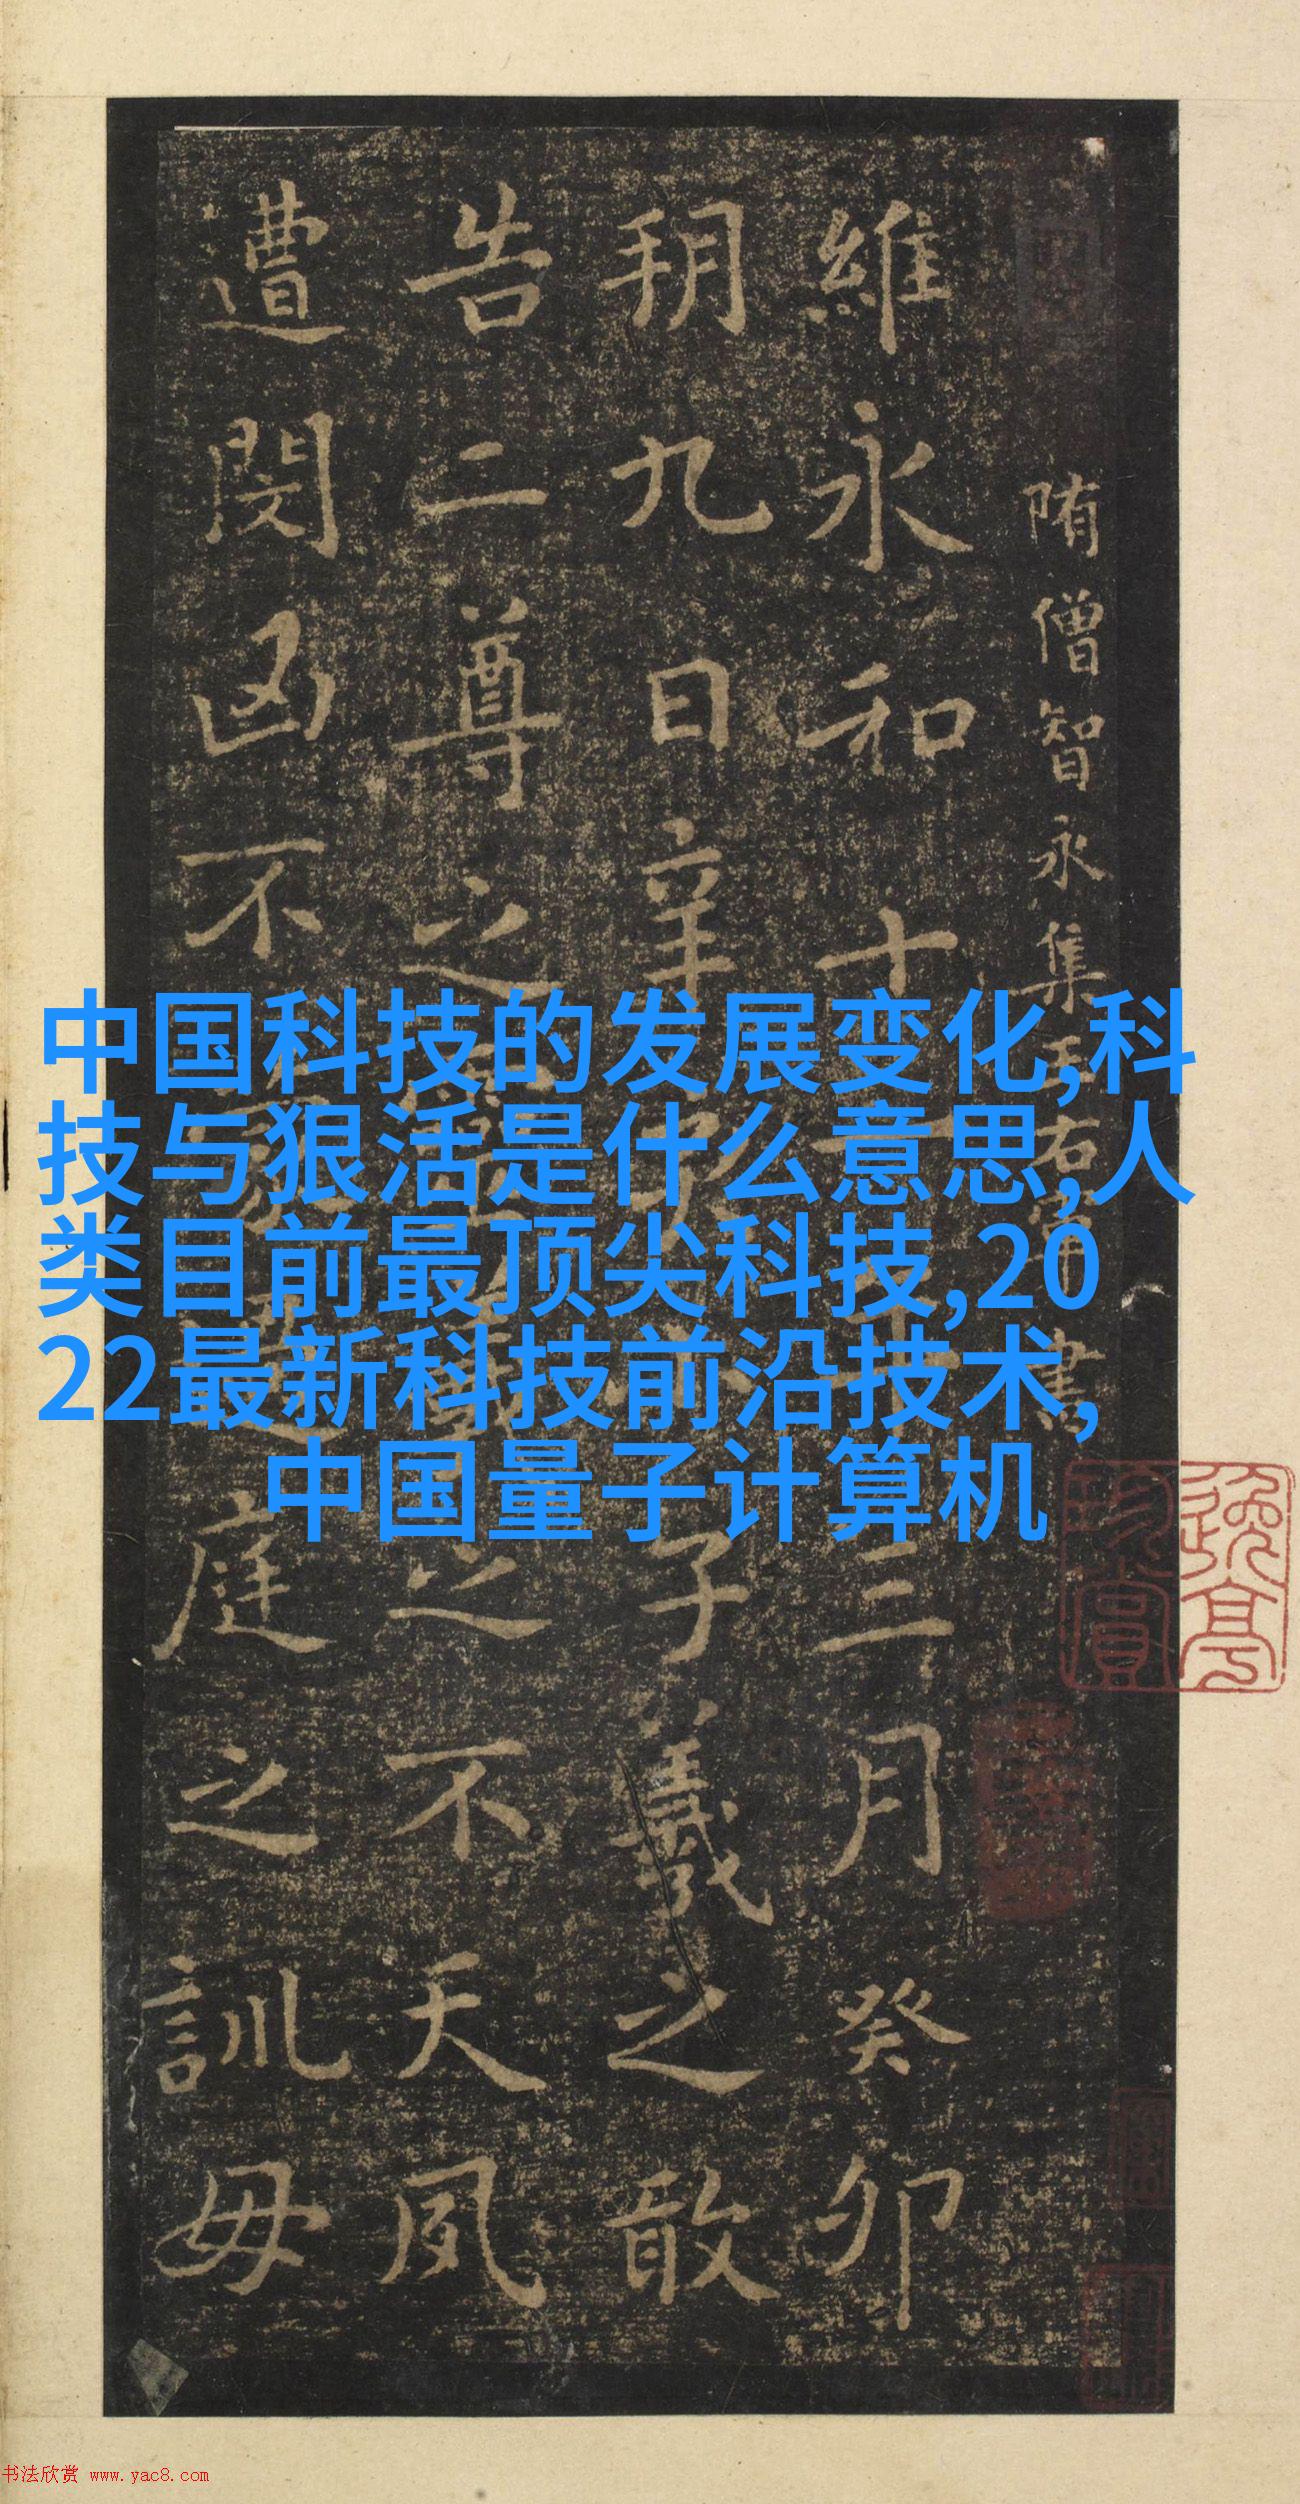 隋僧智永集王右軍書
維永和十一年三月癸卯
朔九日辛亥小子羲之敢
告二尊之靈羲之不天夙
遭閔凶不蒙過庭之訓毋
中国科技的发展变化,科
技与狠活是什么意思,人
类目前最顶尖科技,20
22最新科技前沿技术,
中国量子计算机
书法欣赏 www.yac8.com